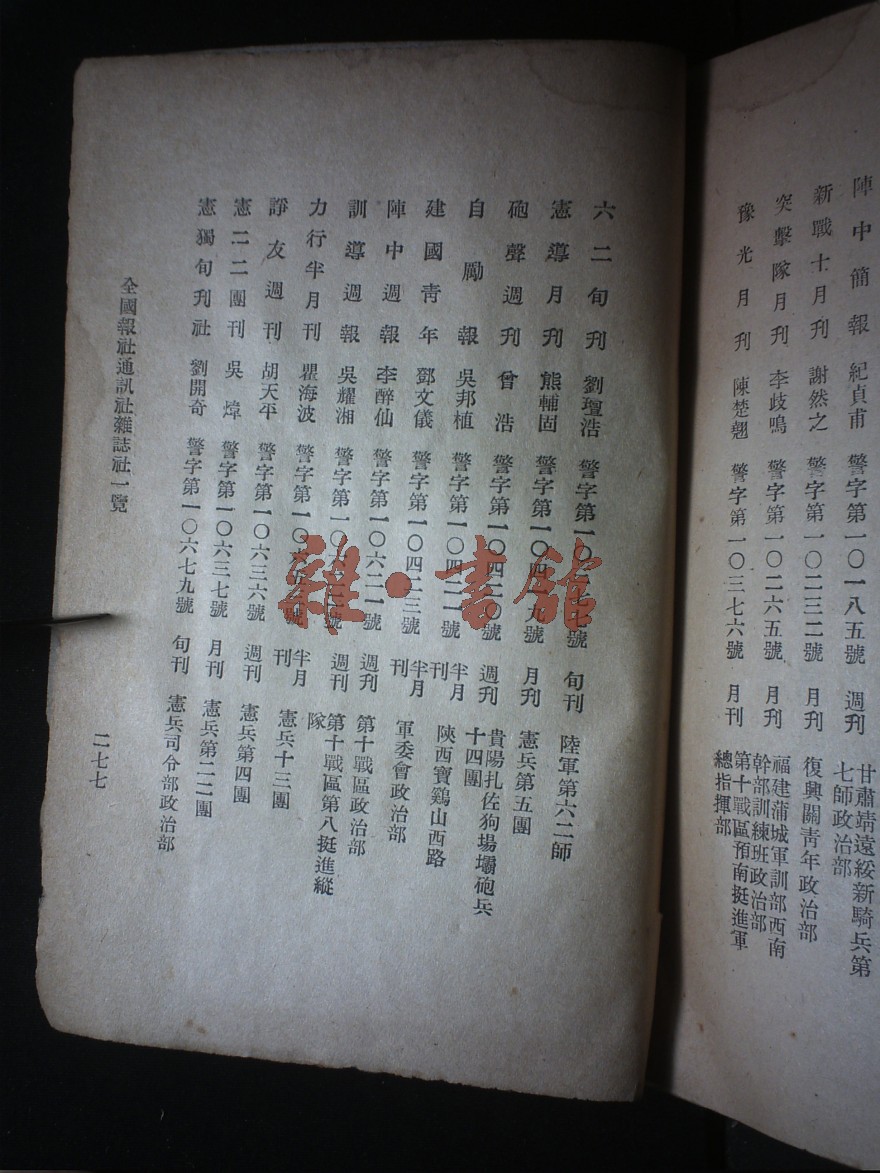 陣中簡報 紀貞甫 警字第一〇一八五號 週刊 甘肅靖遠綏新騎兵第
七師政治部
新戰士月刊 謝然之 警字第一〇二三二號 月刊 復興關青年政治部
突擊隊月刊 李歧鳴 警字第一〇二六五號 月刊 福建蒲城軍訓部西南
幹部訓練班政治部
豫光月刊 陳楚翹 警字第一〇三七六號 月刊 第十戰區預南挺進軍
總指揮部
六二旬刊 劉璮浩 警字第一〇 七號 旬刊 陸軍第六二師
憲導月刊 熊輔固 警字第一〇四一九號 月刊 憲兵第五團
砲聲週刊 曾浩 警字第一〇四二〇號 週刊 貴陽扎佐狗場壩砲兵
十四團
自勵報 吳邦植 警字第一〇四二一號 半月刊 陝西寶鷄山西路
建國青年 鄧文儀 警字第一〇四二三號 半月刊 軍委會政治部
陣中週報 李醉仙 警字第一〇六二一號 週刊 第十戰區政治部
訓導週報 吳耀湘 警字第一〇六 號 週刊 第十戰區第八挺進縱
隊
力行半月刊 瞿海波 警字第一〇六 號 半月刊 憲兵十三團
諍友週刊 胡天平 警字第一〇六三六號 週刊 憲兵第四團
憲二二團刊 吳煒 警字第一〇六三七號 月刊 憲兵第二二團
憲獨旬刊社 劉開奇 警字第一〇六七九號 旬刊 憲兵司令部政治部
全國報社通訊社雜誌社一覽
二七七
雜·書館